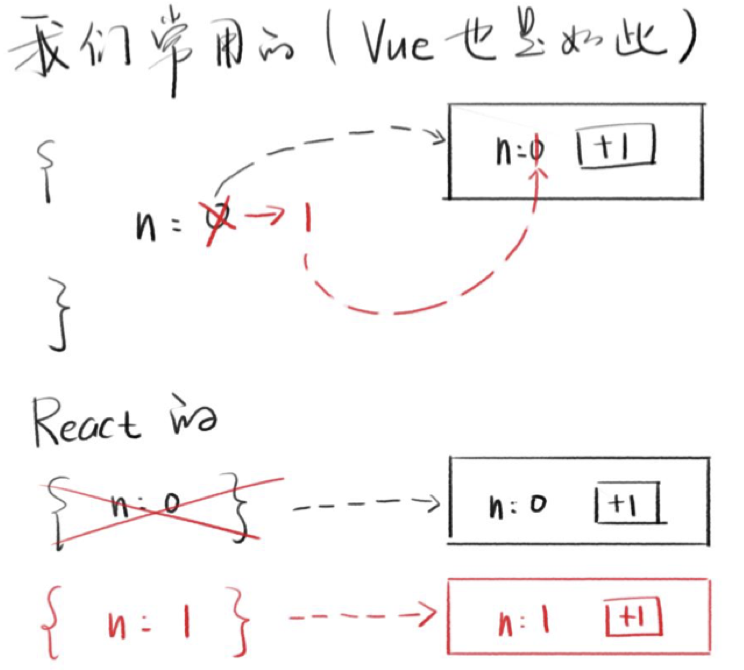 我们常用的(Vue也是如此)
{
n:0 +1
n:0→1
}
React 的
{ n:0 } n:0 +1
{ n:1 } n:1 +1